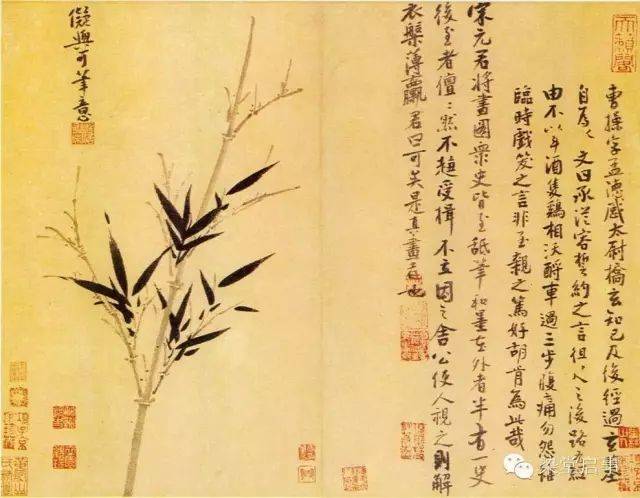 天籟閣
曹操字孟德感太尉橋玄知己及後經過玄墓
自為文曰承從容誓約之言徂之後路有經
由不以斗酒隻鷄相沃酹車過三步腹痛勿怨雖
臨時戲笑之言非至親之篤好胡肯為此哉
宋元君將畫圖衆史皆至舐筆和墨在外者半有一史
後至者儃〻然不趨受揖不立因之舍公使人視之則解
衣槃薄臝君曰可矣是真畫者也
儗與可筆意
堂启事